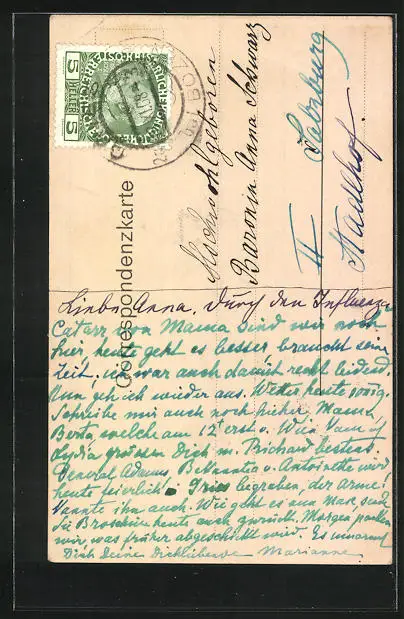 5 HELLER 5
BOZ
Correspondenzkarte
Hochwohlgeboren
Baronin Anna Schwarz
II Salzburg
Liebe Anna. Durch den Influenza
Catarr von Mama sind wir noch
hier, heute geht es besser, braucht sein
Zeit, war auch damit recht leidend.
Nun geh ich wieder aus. Wetter heute
Schreibe mir auch noch früher Mama
Berta, welche am 12t erst v. Wien
Lydia grüssen Dich m. Richard bestens
General Bekannte v. Antoinette wird
heute feierlich i Gries begraben, der arme!
Kannte ihn auch. Wie geht es
die heute auch zurück. Morgen packen
wir, was früher abgeschickt wird. Es umarmt
Dich Deine Dichliebende Marianne